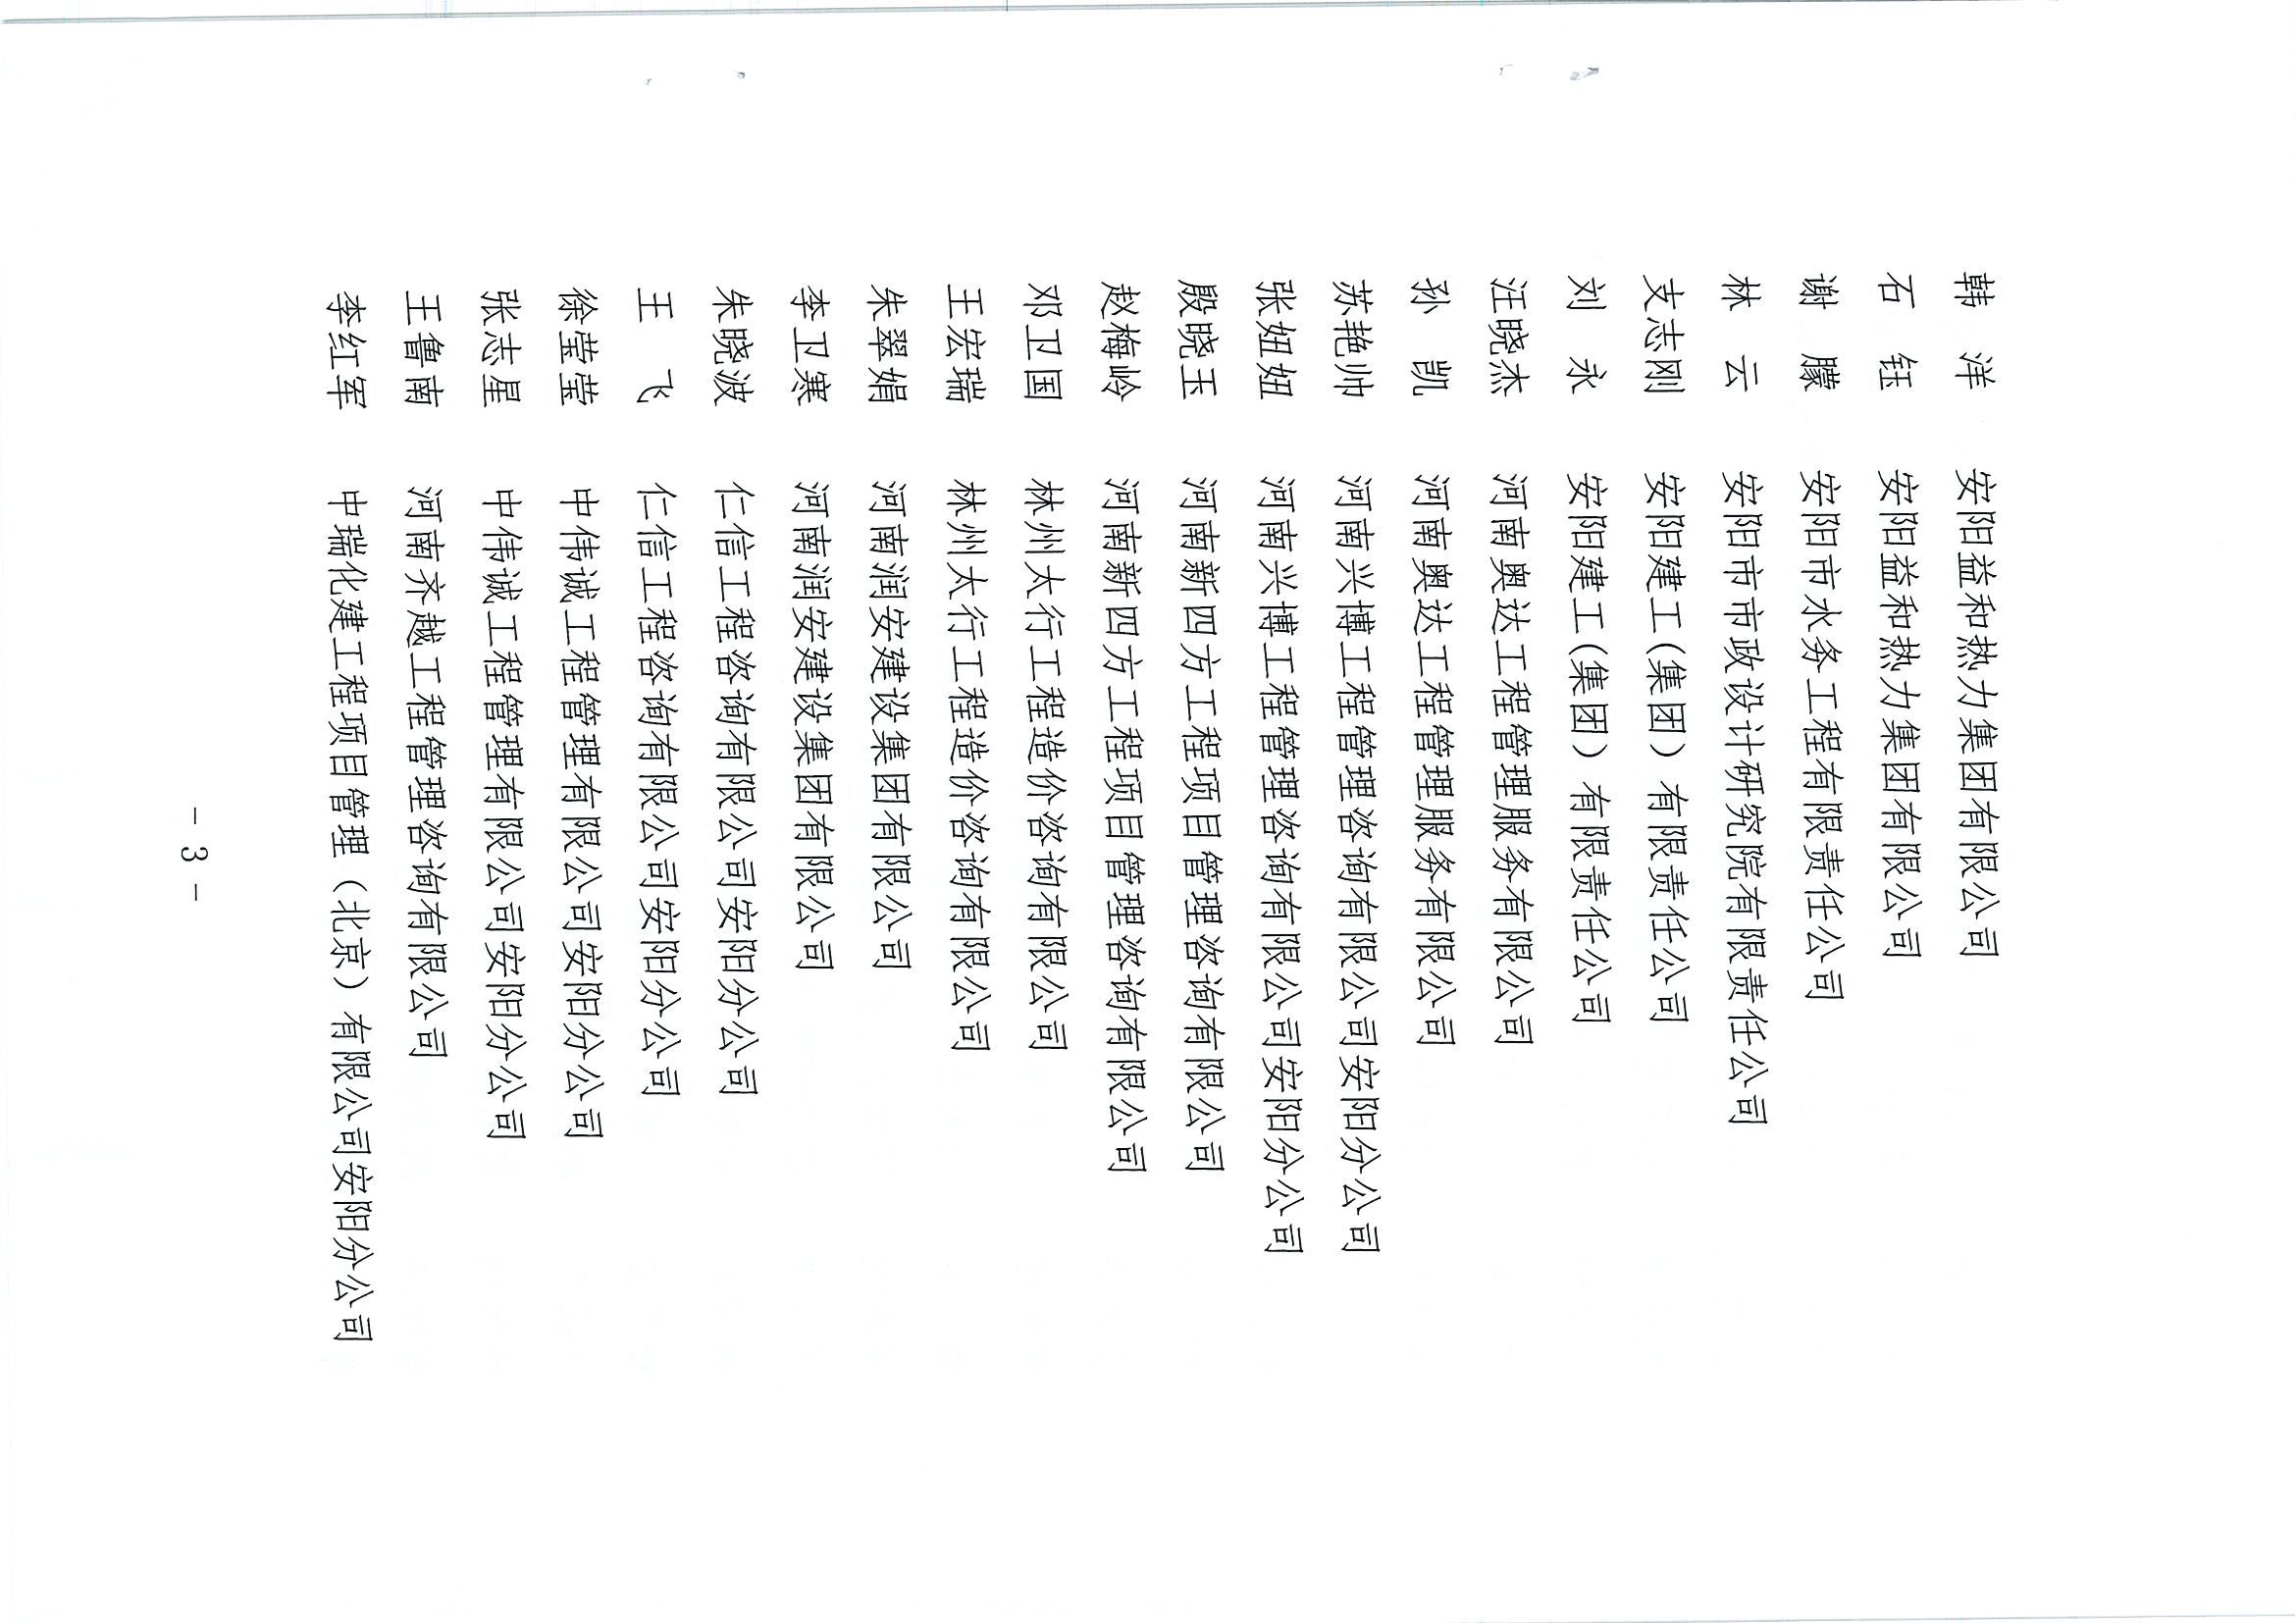 韩　洋　安阳益和热力集团有限公司
石　钰　安阳益和热力集团有限公司
谢　朦　安阳市水务工程有限责任公司
林　云　安阳市市政设计研究院有限责任公司
支志刚　安阳建工（集团）有限责任公司
刘　永　安阳建工（集团）有限责任公司
汪晓杰　河南奥达工程管理服务有限公司
孙　凯　河南奥达工程管理服务有限公司
苏艳帅　河南兴博工程管理咨询有限公司安阳分公司
张妞妞　河南兴博工程管理咨询有限公司安阳分公司
殷晓玉　河南新四方工程项目管理咨询有限公司
赵梅岭　河南新四方工程项目管理咨询有限公司
邓卫国　林州太行工程造价咨询有限公司
王宏瑞　林州太行工程造价咨询有限公司
朱翠娟　河南润安建设集团有限公司
李卫寒　河南润安建设集团有限公司
朱晓波　仁信工程咨询有限公司安阳分公司
王　飞　仁信工程咨询有限公司安阳分公司
徐莹莹　中伟诚工程管理有限公司安阳分公司
张志星　中伟诚工程管理有限公司安阳分公司
王鲁南　河南齐越工程管理咨询有限公司
李红军　中瑞化建工程项目管理（北京）有限公司安阳分公司
- 3 -